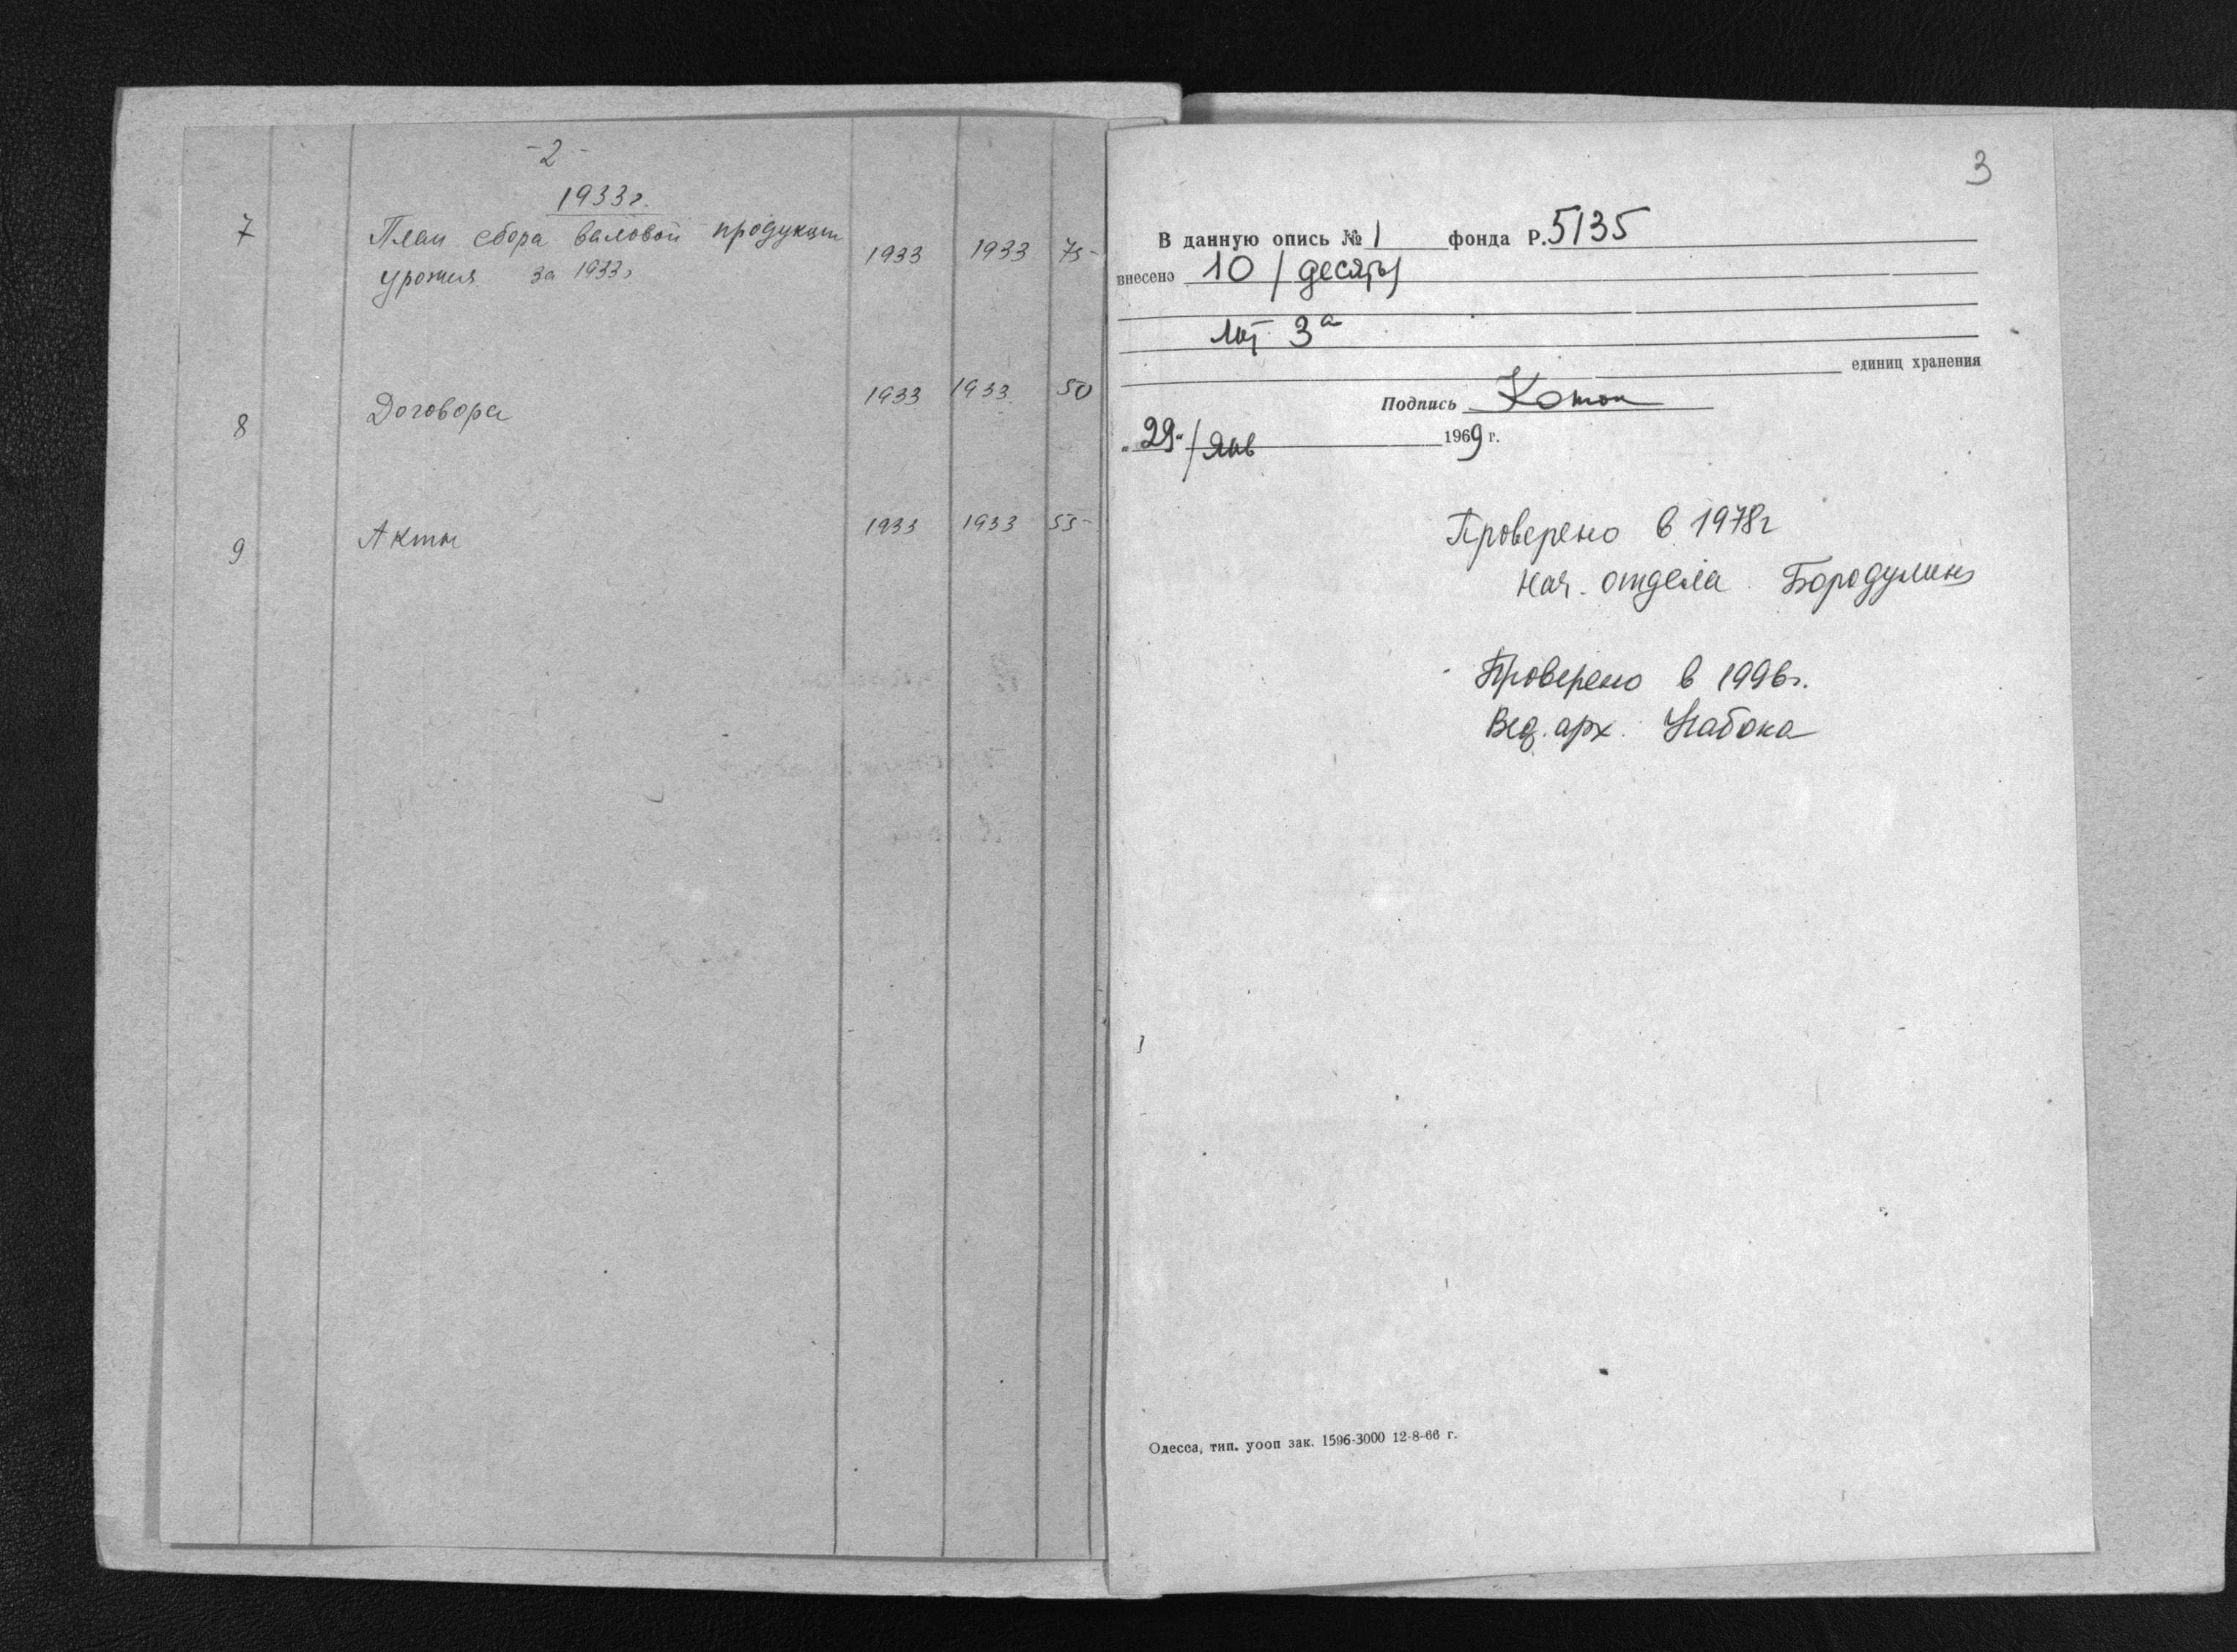 -2-
1933г.
7 План сбора валовой продукции 1933 1933 75
урожая за 1933г
8 Договора 1933 1933 50
9 Акты 1933 1933 55
3
В данную опись № 1 фонда Р.5135
внесено 10 /десять/
лит 3а
единиц хранения
Подпись
„29" / янв 1969 г.
Проверено в 1978г
нач. отдела Бородулина
Проверено в 1996г.
Вед. арх. Набока
Одесса, тип. уооп зак. 1596-3000 12-8-66 г.